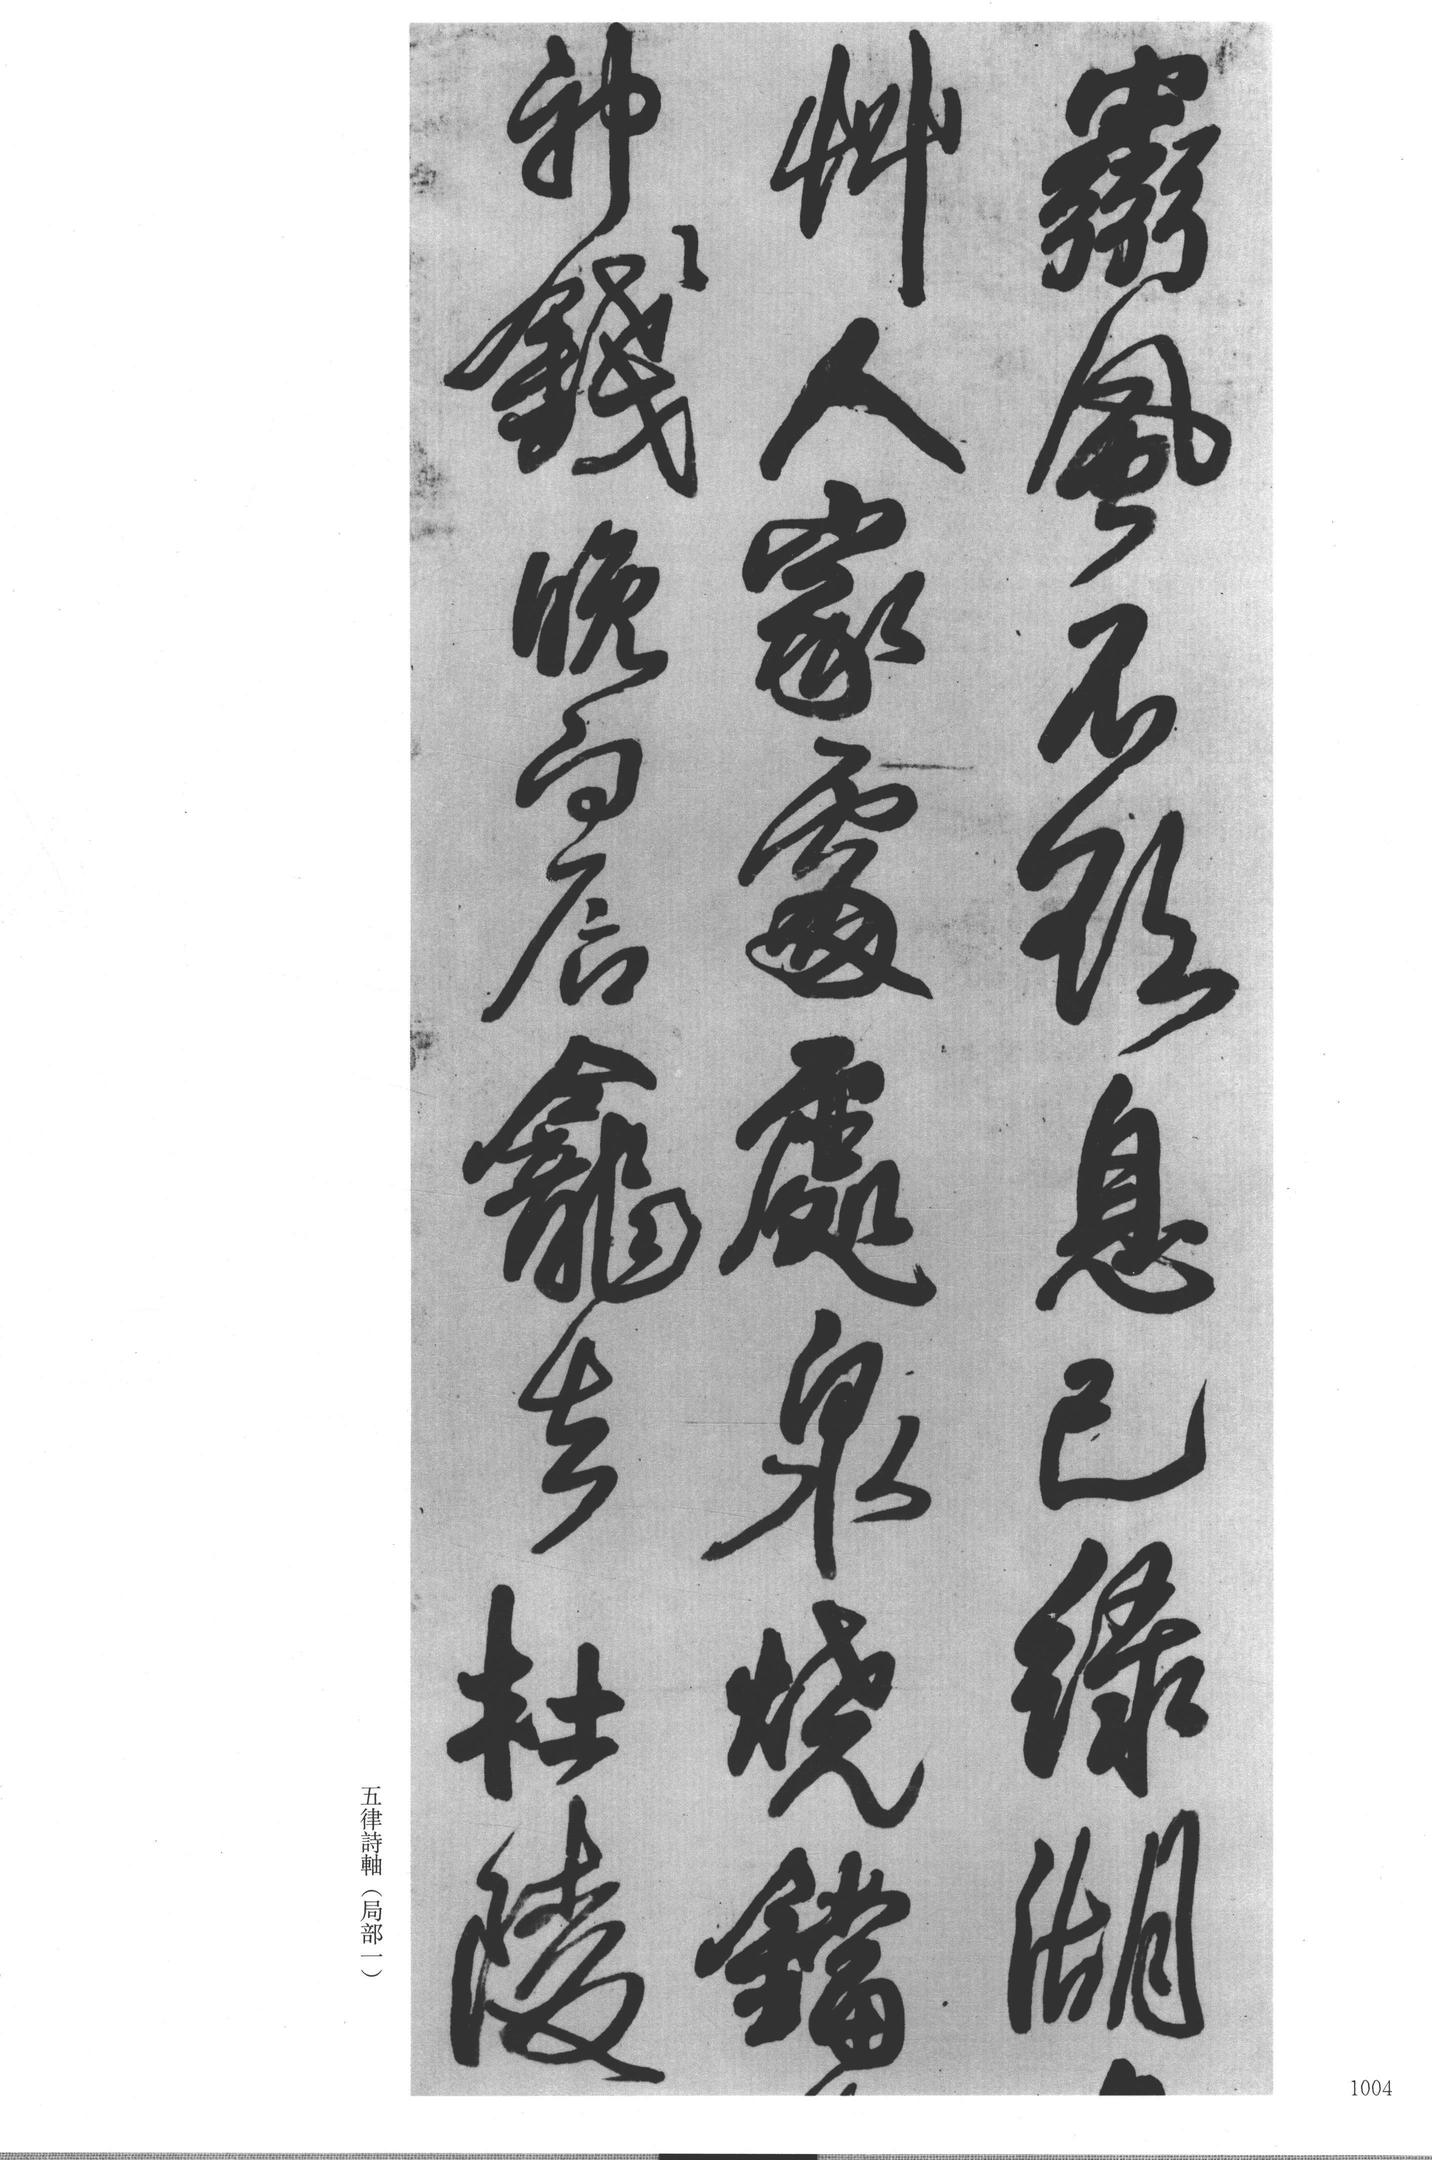 風不欲息已綠湖
艸人家處處泉燒鐺
神錢晚向龕去杜陵
五律詩軸（局部一）
1004